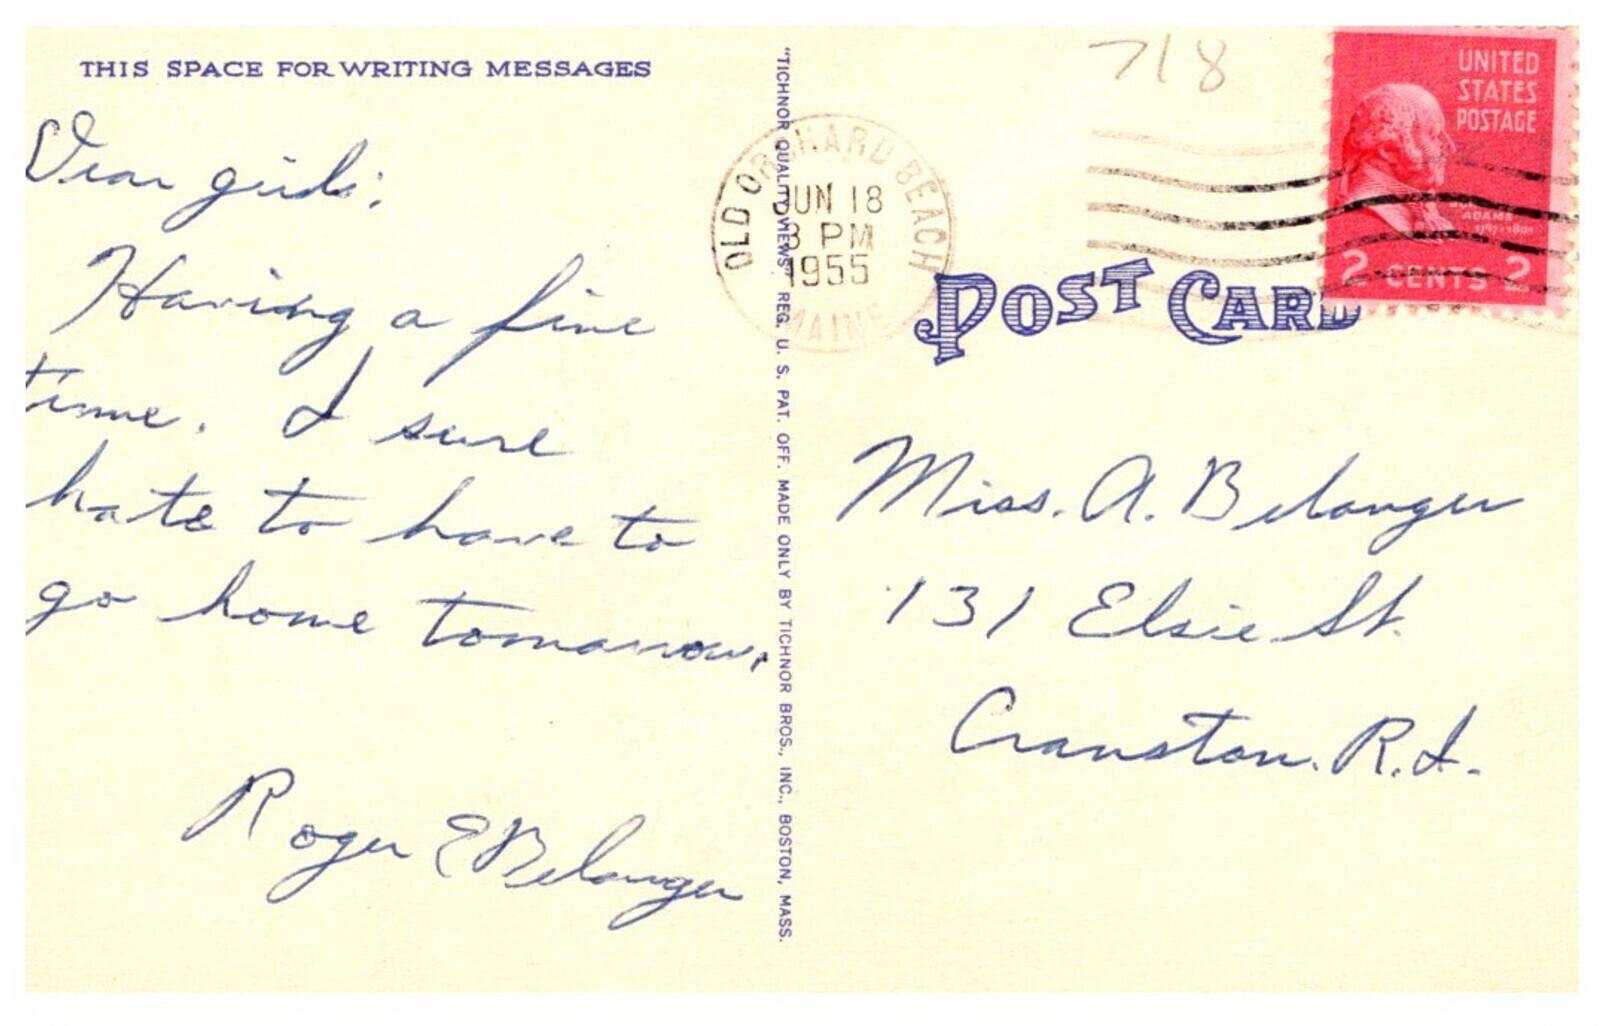 THIS SPACE FOR WRITING MESSAGES
Dear girls:
Having a fine
time. I sure
hate to have to
go home tomorrow.
Roger E Belanger
"TICHNOR QUALITY VIEWS," REG. U. S. PAT. OFF. MADE ONLY BY TICHNOR BROS., INC., BOSTON, MASS.
718
OLD ORCHARD BEACH
JUN 18
3 PM
1955
MAINE
UNITED
STATES
POSTAGE
ADAMS
1797-1801
2 CENTS 2
POST CARD
Miss. A. Belanger
131 Elsie St.
Cranston. R.I.